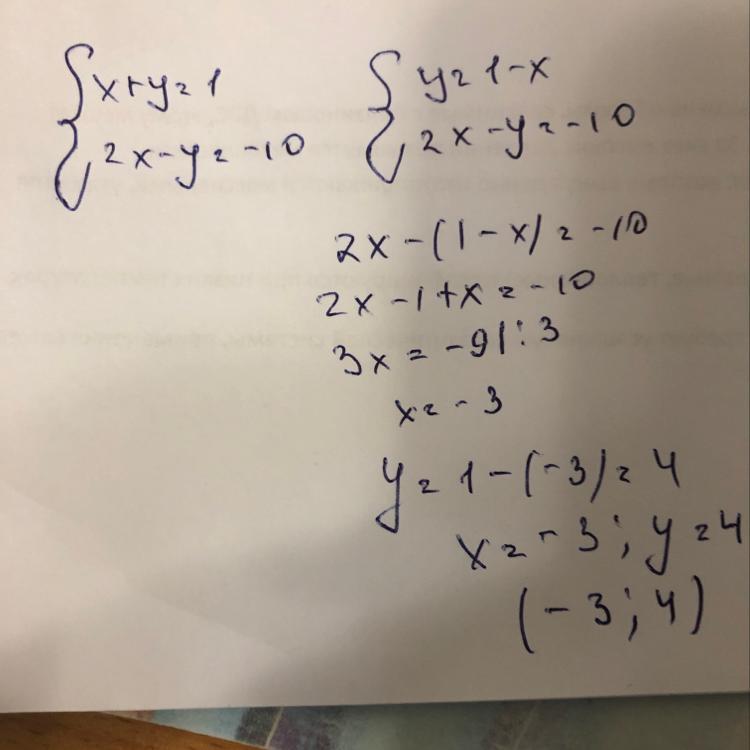 { x+y=1
2x-y=-10
{ y=1-x
2x-y=-10
2x-(1-x)=-10
2x-1+x=-10
3x=-9|:3
x=-3
y=1-(-3)=4
x=-3; y=4
(-3; 4)